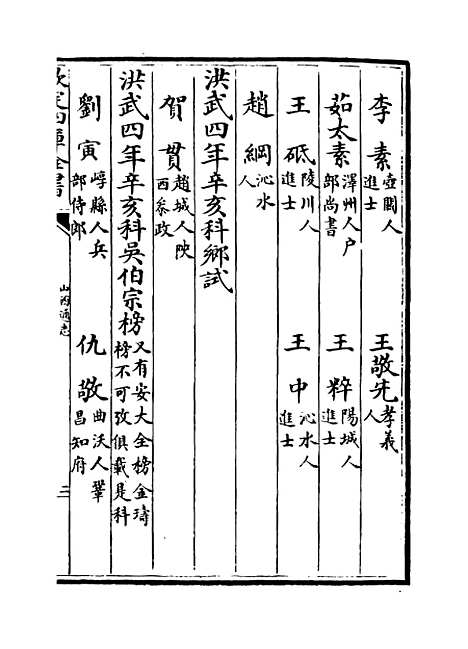 李素 壺關人進士 王敬先 孝義人
茹太素 澤州人戶部尚書 王粹 陽城人進士
王砥 陵川人進士 王中 沁水人進士
趙綱 沁水人
洪武四年辛亥科鄉試
賀貫 趙城人陝西叅政
洪武四年辛亥科吳伯宗榜 又有安大全榜金璹榜不可攷俱載是科
劉寅 崞縣人兵部侍郎 仇敬 曲沃人鞏昌知府
欽定四庫全書 山西通志 三